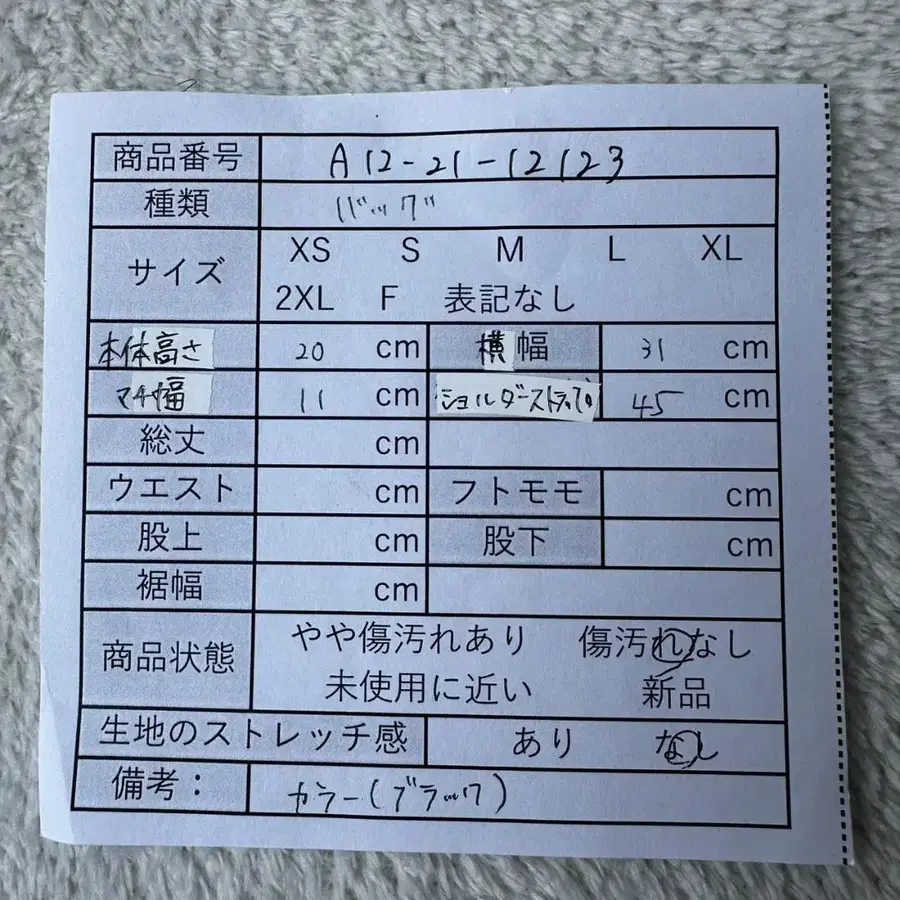 商品番号 A12-21-12123
種類 バッグ
サイズ XS S M L XL
2XL F 表記なし
本体高さ 20 cm 横幅 31 cm
マチ幅 11 cm ショルダーストラップ 45 cm
総丈 cm
ウエスト cm フトモモ cm
股上 cm 股下 cm
裾幅 cm
商品状態 やや傷汚れあり 傷汚れなし
未使用に近い 新品
生地のストレッチ感 あり なし
備考: カラー(ブラック)